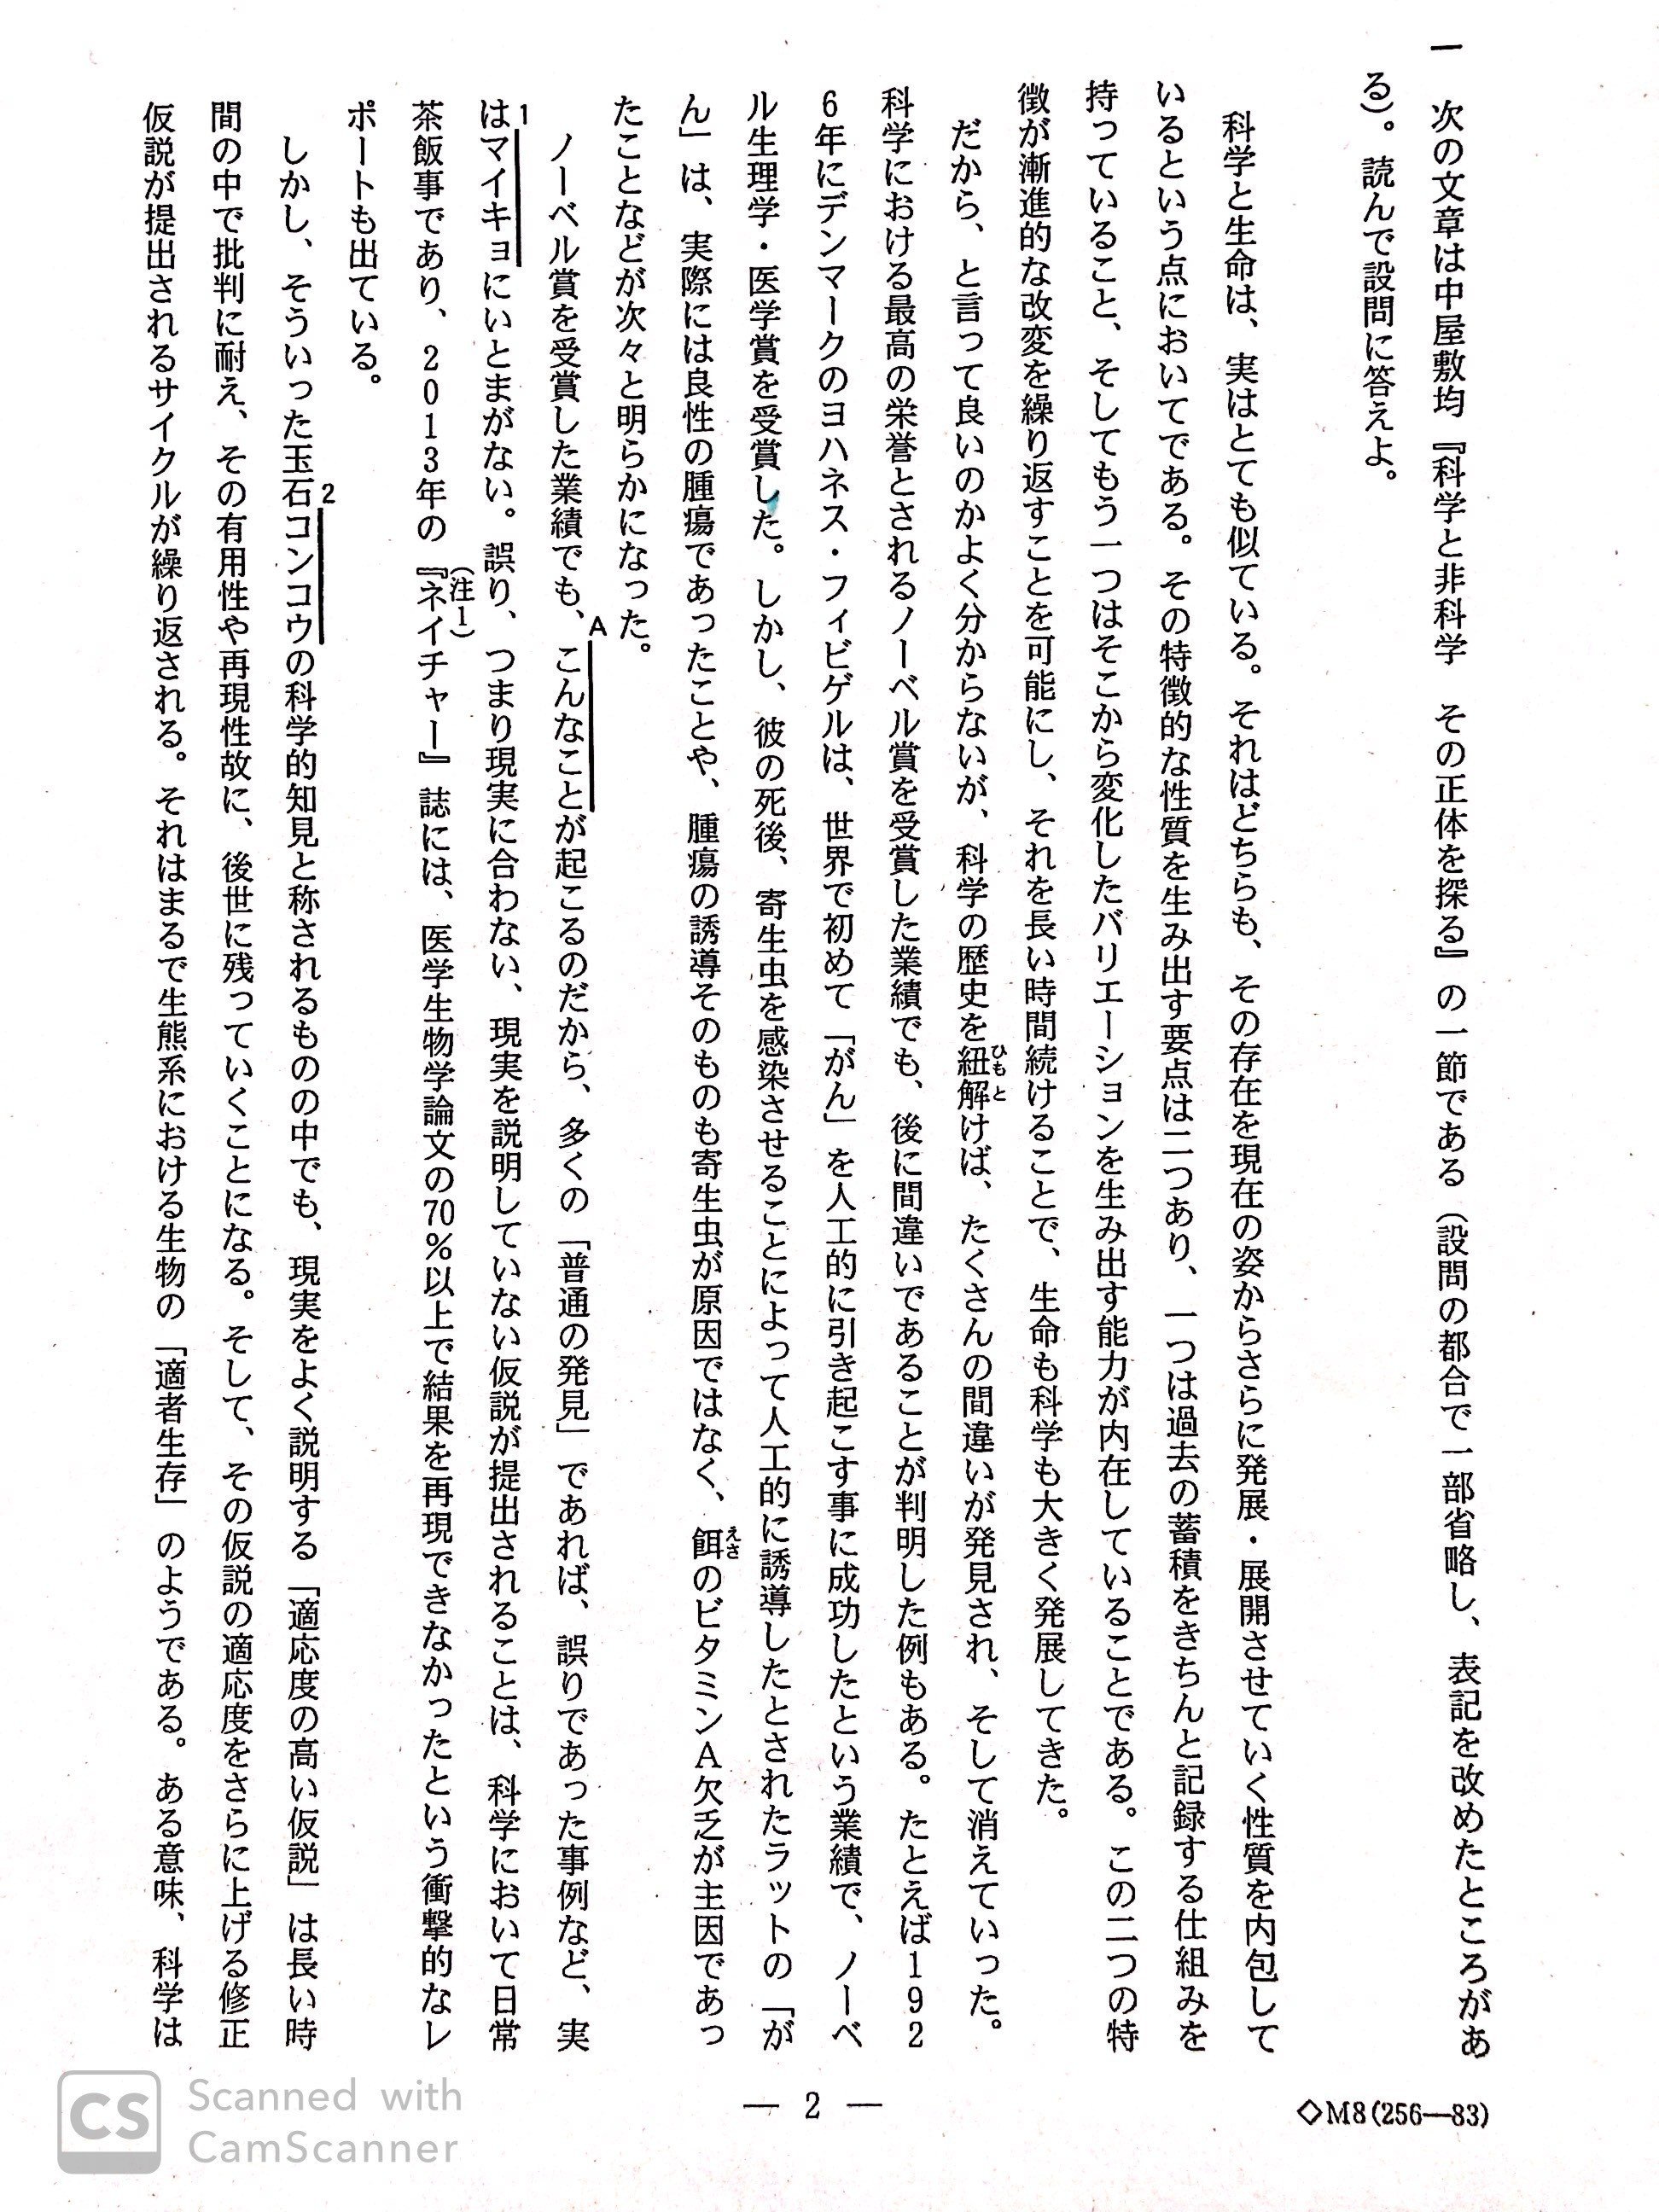 一　次の文章は中屋敷均『科学と非科学　その正体を探る』の一節である（設問の都合で一部省略し、表記を改めたところがあ
る）。読んで設問に答えよ。
科学と生命は、実はとても似ている。それはどちらも、その存在を現在の姿からさらに発展・展開させていく性質を内包して
いるという点においてである。その特徴的な性質を生み出す要点は二つあり、一つは過去の蓄積をきちんと記録する仕組みを
持っていること、そしてもう一つはそこから変化したバリエーションを生み出す能力が内在していることである。この二つの特
徴が漸進的な改変を繰り返すことを可能にし、それを長い時間続けることで、生命も科学も大きく発展してきた。
だから、と言って良いのかよく分からないが、科学の歴史を紐解けば、たくさんの間違いが発見され、そして消えていった。
ひもと
科学における最高の栄誉とされるノーベル賞を受賞した業績でも、後に間違いであることが判明した例もある。たとえば192
6年にデンマークのヨハネス・フィビゲルは、世界で初めて「がん」を人工的に引き起こす事に成功したという業績で、ノーベ
ル生理学・医学賞を受賞した。しかし、彼の死後、寄生虫を感染させることによって人工的に誘導したとされたラットの「が
ん」は、実際には良性の腫瘍であったことや、腫瘍の誘導そのものも寄生虫が原因ではなく、餌のビタミンA欠乏が主因であっ
えさ
たことなどが次々と明らかになった。
ノーベル賞を受賞した業績でも、こんなことが起こるのだから、多くの「普通の発見」であれば、誤りであった事例など、実
A
はマイキョにいとまがない。誤り、つまり現実に合わない、現実を説明していない仮説が提出されることは、科学において日常
1
茶飯事であり、2013年の『ネイチャー』誌には、医学生物学論文の70％以上で結果を再現できなかったという衝撃的なレ
（注1）
ポートも出ている。
しかし、そういった玉石コンコウの科学的知見と称されるものの中でも、現実をよく説明する「適応度の高い仮説」は長い時
2
間の中で批判に耐え、その有用性や再現性故に、後世に残っていくことになる。そして、その仮説の適応度をさらに上げる修正
仮説が提出されるサイクルが繰り返される。それはまるで生態系における生物の「適者生存」のようである。ある意味、科学は
— 2 —
◇M8(256—83)
CS
Scanned with
CamScanner